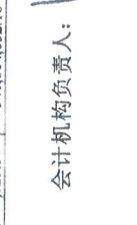 会计机构负责人：